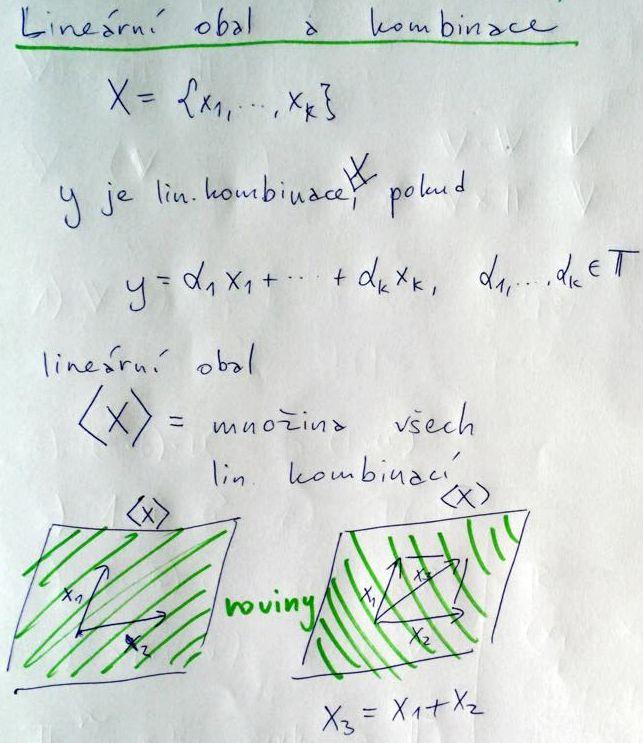 Lineární obal a kombinace
X = {x₁, ..., xₖ}
y je lin. kombinace X, pokud
y = α₁x₁ + ... + αₖxₖ, α₁, ..., αₖ ∈ T
lineární obal
⟨X⟩ = množina všech
lin. kombinací
⟨X⟩ ⟨X⟩
x₁ x₂ roviny x₁ x₃ x₂
x₃ = x₁ + x₂